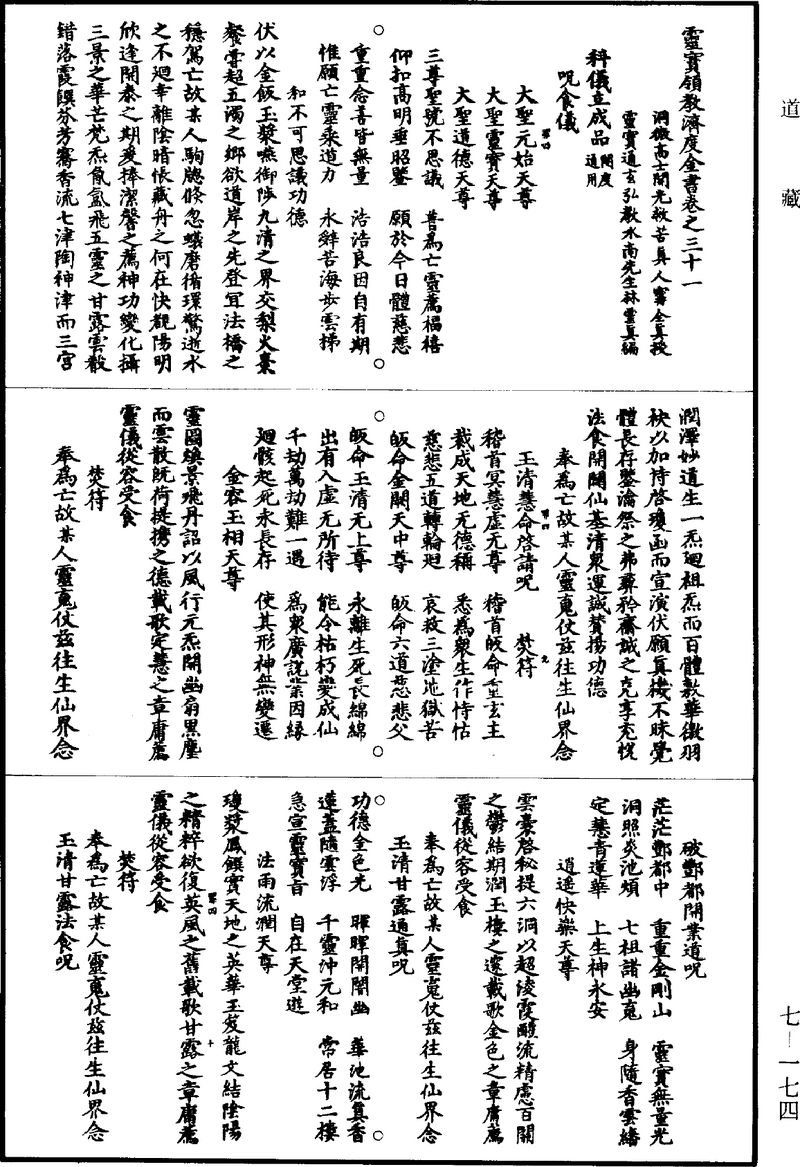 道藏
七—一七四
靈寶領教濟度金書卷之三十一
洞微高士開光救苦真人甯全真授
靈寶通玄弘教水南先生林靈真編
科儀立成品開度通用
呪食儀
大聖元始天尊
大聖靈寶天尊
大聖道德天尊
三尊聖號不思議　普為亡靈薦福禧
仰扣高明垂昭鑒　願於今日體慈悲
重重念善皆無量　浩浩良因自有期
惟願亡靈乘道力　永辭苦海步雲梯
和不可思議功德
伏以金飯玉漿嚥御陟九清之界交梨火棗
餐嘗超五濁之鄉欲道岸之先登宜法橋之
穩駕亡故某人駒隙倏忽蟻磨循環驚逝水
之不迴幸離陰暗悵藏舟之何在快覩陽明
欣逢開泰之期爰捧潔馨之薦神功變化攝
三景之華芒梵炁氤氳飛五靈之甘露雲散
錯落霞饌芬芳騫香流七津陶神津而三宮
潤澤妙道生一炁迴祖炁而百體敷華徹羽
袂以加持啓瓊函而宣演伏願真樓不昧覺
體長存鑒瀹祭之弗尋矜齋誠之克享充悅
法食開闡仙基清衆運誠贊揚功德
奉為亡故某人靈䰟仗茲往生仙界念
玉清慧命啓請呪　焚符
稽首冥慧虛无尊　稽首皈命重玄主
裁成天地无德稱　悉為衆生作恃怙
慈悲五道轉輪迴　哀救三塗地獄苦
皈命金闕天中尊　皈命六道慈悲父
皈命玉清无上尊　永離生死長綿綿
出有入虛无所待　能令枯朽變成仙
千劫萬劫難一遇　為衆廣説業因緣
迴骸起死永長存　使其形神無變遷
金容玉相天尊
靈圖煥景飛丹詔以風行元炁開幽扇黒塵
而雲散既荷提攜之德載歌定慧之章庸薦
靈儀從容受食
焚符
奉為亡故某人靈䰟仗茲往生仙界念
破酆都開業道呪
茫茫酆都中　重重金剛山　靈寶無量光
洞照炎池煩　七祖諸幽䰟　身隨香雲旛
定慧青蓮華　上生神永安
逍遥快樂天尊
雲橐啓秘提六洞以超淩霞醑流精慮百關
之鬱結期潤玉樓之邃載歌金色之章庸薦
靈儀從容受食
奉為亡故某人靈䰟仗茲往生仙界念
玉清甘露通真呪
功德金色光　暉暉開闇幽　華池流真香
蓮蓋隨雲浮　千靈沖元和　常居十二樓
急宣靈寶旨　自在天堂遊
法雨流潤天尊
瓊漿鳳饌實天地之英華玉芨龍文結陰陽
之精粹欲復英風之舊載歌甘露之章庸薦
靈儀從容受食
焚符
奉為亡故某人靈䰟仗茲往生仙界念
玉清甘露法食呪